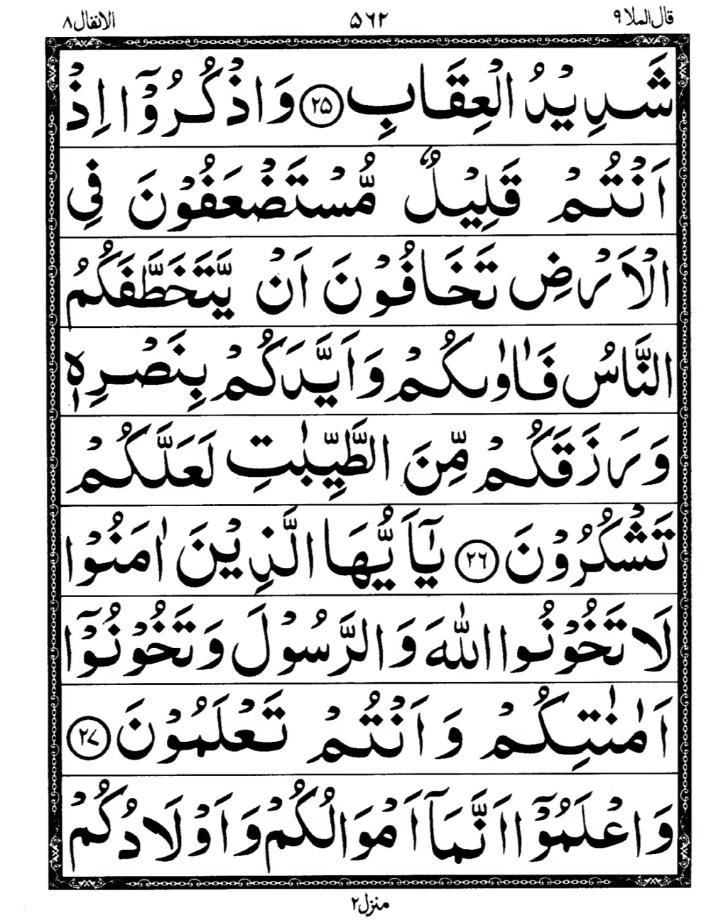 قال الملا ۹ ۵۶۲ الانفال ۸
شَدِيْدُ الْعِقَابِ ۝۲۵ وَاذْكُرُوْۤا اِذْ
اَنْتُمْ قَلِيْلٌ مُّسْتَضْعَفُوْنَ فِي
الْاَرْضِ تَخَافُوْنَ اَنْ يَّتَخَطَّفَكُمُ
النَّاسُ فَاٰوٰىكُمْ وَاَيَّدَكُمْ بِنَصْرِهٖ
وَرَزَقَكُمْ مِّنَ الطَّيِّبٰتِ لَعَلَّكُمْ
تَشْكُرُوْنَ ۝۲۶ يٰۤاَيُّهَا الَّذِيْنَ اٰمَنُوْا
لَا تَخُوْنُوا اللّٰهَ وَالرَّسُوْلَ وَتَخُوْنُوْۤا
اَمٰنٰتِكُمْ وَاَنْتُمْ تَعْلَمُوْنَ ۝۲۷
وَاعْلَمُوْۤا اَنَّمَاۤ اَمْوَالُكُمْ وَاَوْلَادُكُمْ
منزل ۲